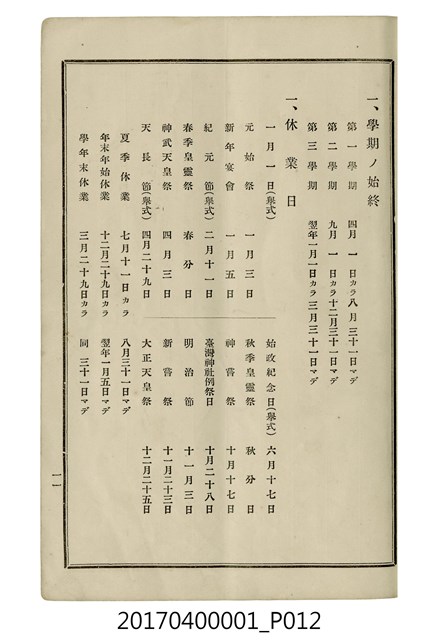 一、學期ノ始終
第一學期 四月一日カラ八月三十一日マデ
第二學期 九月一日カラ十二月三十一日マデ
第三學期 翌年一月一日カラ三月三十一日マデ
一、休業日
一月一日(擧式)
始政紀念日(擧式) 六月十七日
元始祭 一月三日
秋季皇靈祭 秋分日
新年宴會 一月五日
神嘗祭 十月十七日
紀元節(擧式) 二月十一日
臺灣神社例祭日 十月二十八日
春季皇靈祭 春分日
明治節 十一月三日
神武天皇祭 四月三日
新嘗祭 十一月二十三日
天長節(擧式) 四月二十九日
大正天皇祭 十二月二十五日
夏季休業 七月十一日カラ 八月三十一日マデ
年末年始休業 十二月二十九日カラ 翌年一月五日マデ
學年末休業 三月二十九日カラ 同 三十一日マデ
一一
20170400001_P012